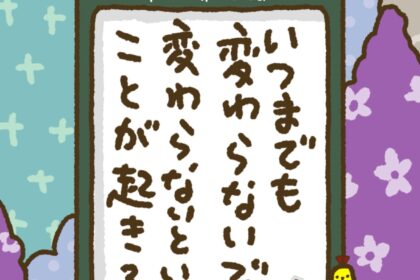 いつまでも
変わらないで
変わらないとい
ことが起き